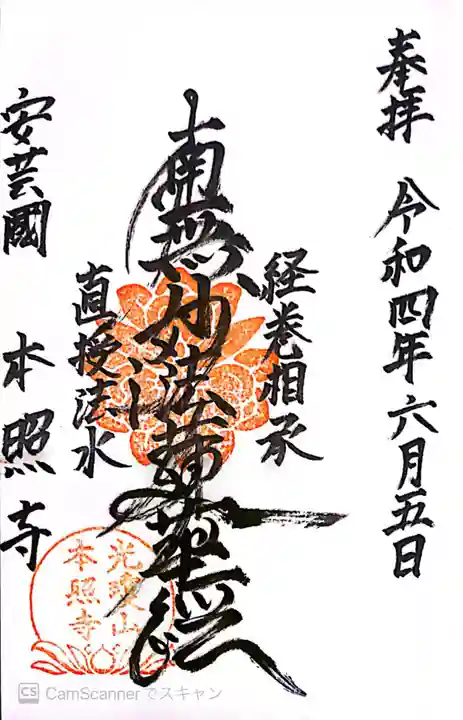 奉拝 令和四年六月五日
経巻相承
南無妙法蓮華経
直授法水
安芸國 本照寺
光瓊山
本照寺
CS CamScannerでスキャン